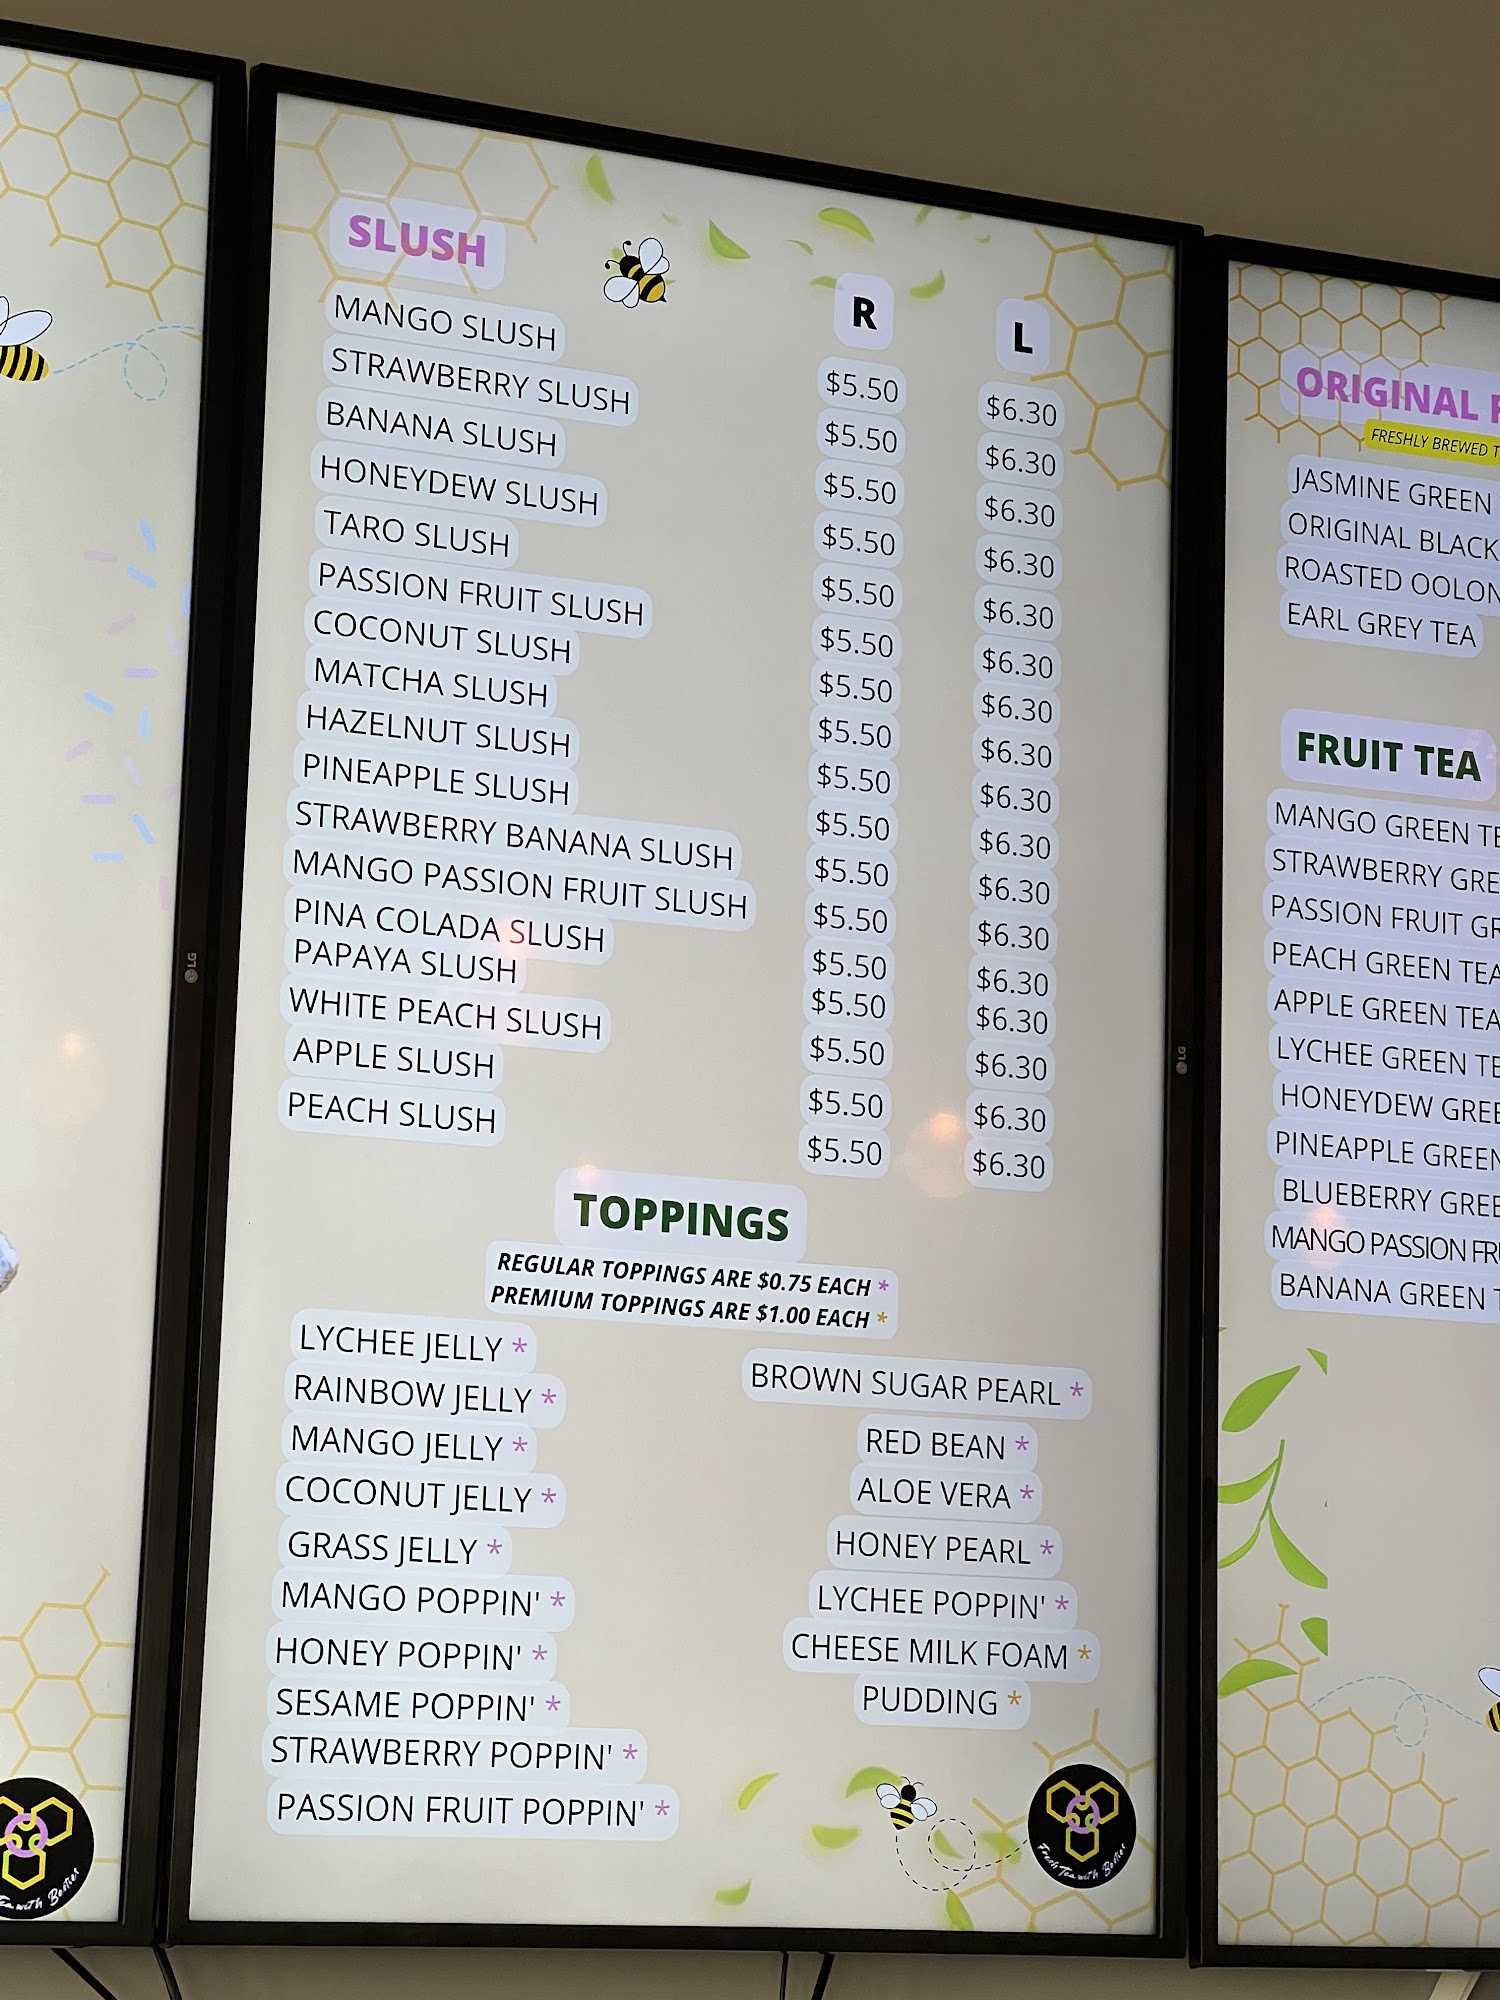 SLUSH
R L
MANGO SLUSH $5.50 $6.30
STRAWBERRY SLUSH $5.50 $6.30
BANANA SLUSH $5.50 $6.30
HONEYDEW SLUSH $5.50 $6.30
TARO SLUSH $5.50 $6.30
PASSION FRUIT SLUSH $5.50 $6.30
COCONUT SLUSH $5.50 $6.30
MATCHA SLUSH $5.50 $6.30
HAZELNUT SLUSH $5.50 $6.30
PINEAPPLE SLUSH $5.50 $6.30
STRAWBERRY BANANA SLUSH $5.50 $6.30
MANGO PASSION FRUIT SLUSH $5.50 $6.30
PINA COLADA SLUSH $5.50 $6.30
PAPAYA SLUSH $5.50 $6.30
WHITE PEACH SLUSH $5.50 $6.30
APPLE SLUSH $5.50 $6.30
PEACH SLUSH $5.50 $6.30
TOPPINGS
REGULAR TOPPINGS ARE $0.75 EACH *
PREMIUM TOPPINGS ARE $1.00 EACH *
LYCHEE JELLY *
RAINBOW JELLY *
MANGO JELLY *
COCONUT JELLY *
GRASS JELLY *
MANGO POPPIN' *
HONEY POPPIN' *
SESAME POPPIN' *
STRAWBERRY POPPIN' *
PASSION FRUIT POPPIN' *
BROWN SUGAR PEARL *
RED BEAN *
ALOE VERA *
HONEY PEARL *
LYCHEE POPPIN' *
CHEESE MILK FOAM *
PUDDING *
Fresh Tea with Besties
LG
LG
ORIGINAL
FRESHLY BREWED
JASMINE GREEN
ORIGINAL BLACK
ROASTED
EARL GREY TEA
FRUIT TEA
MANGO GREEN
STRAWBERRY
PASSION FRUIT
PEACH GREEN TEA
APPLE GREEN TEA
LYCHEE GREEN
HONEYDEW
PINEAPPLE GREEN
BLUEBERRY
MANGO PASSION
BANANA GREEN
with Besties